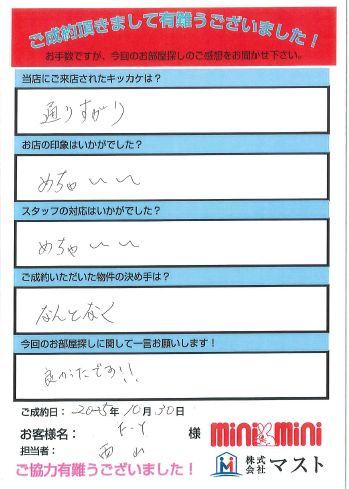 ご成約頂きまして有難うございました！
お手数ですが、今回のお部屋探しのご感想をお聞かせ下さい。
当店にご来店されたキッカケは？
通りすがり
お店の印象はいかがでした？
めちゃいい
スタッフの対応はいかがでした？
めちゃいい
ご成約いただいた物件の決め手は？
なんとなく
今回のお部屋探しに関して一言お願いします！
良かったです!!
ご成約日：2015年10月30日
お客様名： K-Y 様 mini mini
担当者： 西山 株式会社 マスト
ご協力有難うございました！